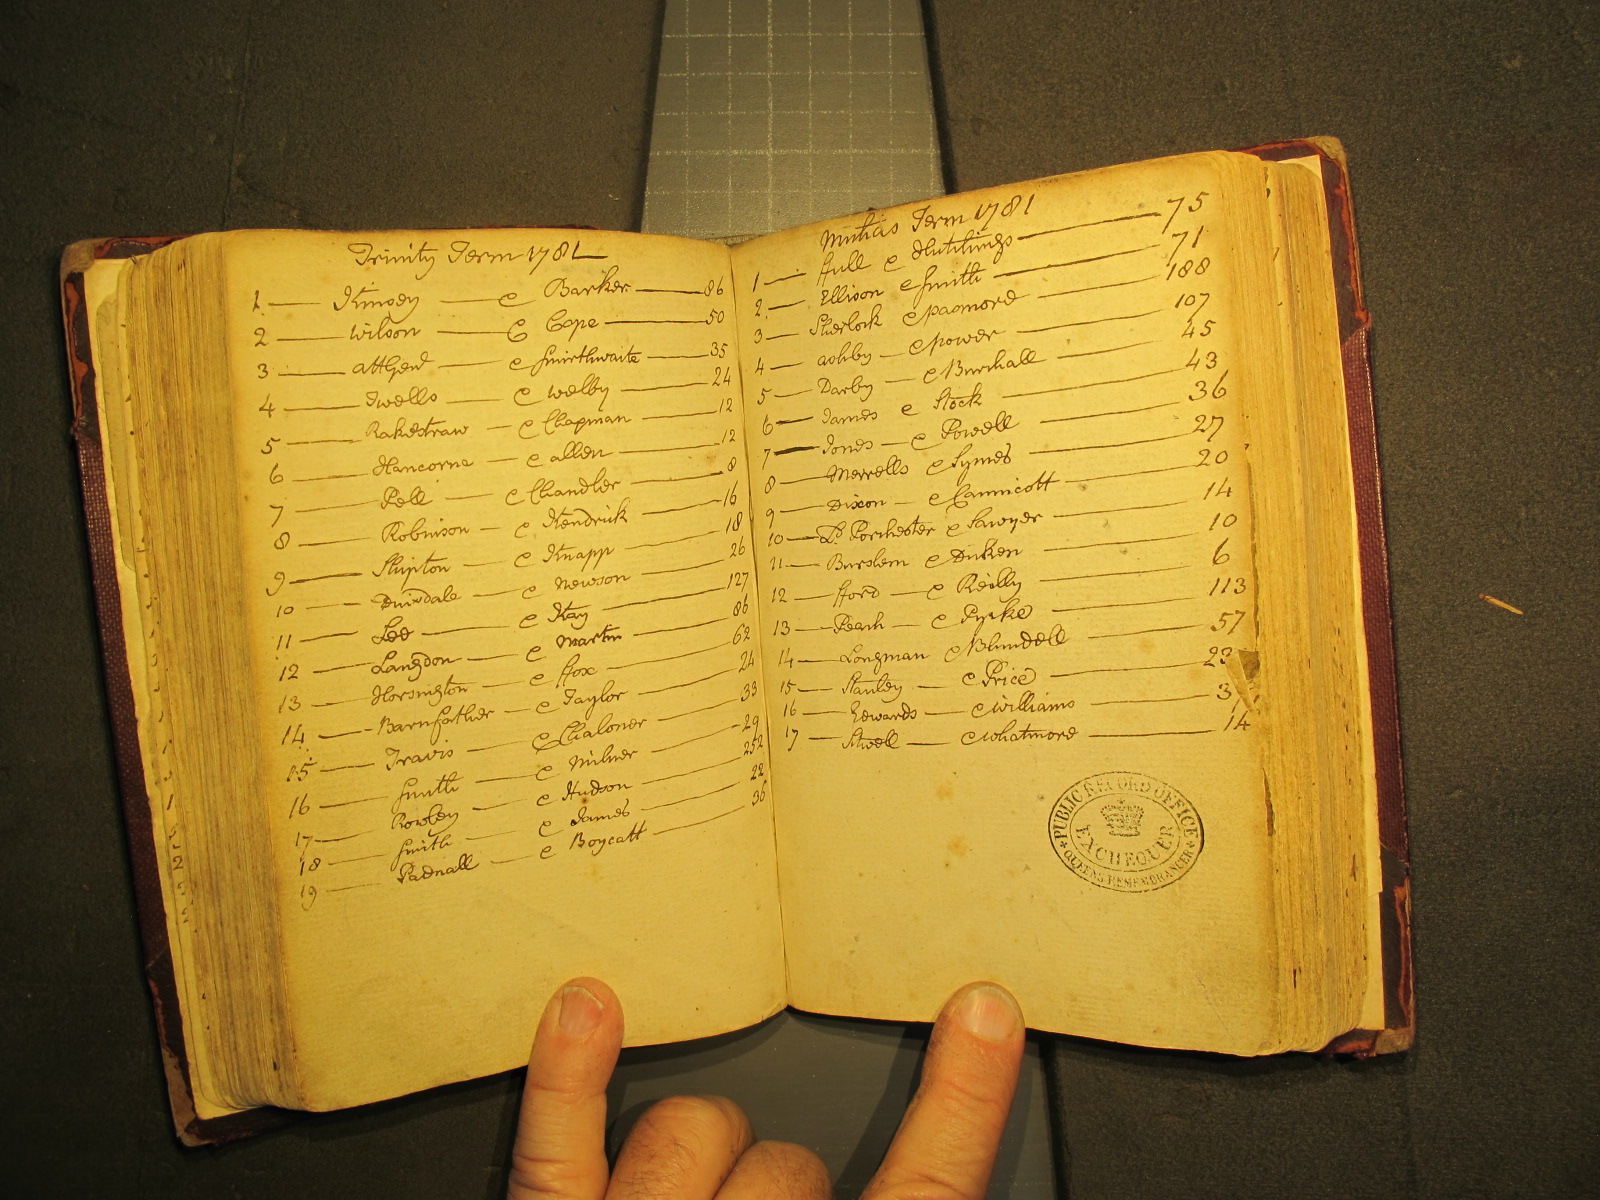 Trinity Term 1781
1 Kinsey c Barker 86
2 Wilson c Cope 50
3 Atthend c Smirthwaite 35
4 Twells c Welby 24
5 Rakestraw c Chapman 12
6 Hancorne c Allen 12
7 Pell c Chandler 8
8 Robinson c Kendrick 16
9 Shipton c Knapp 18
10 c Newson 26
11 Lee c Kay 127
12 Langdon c Martin 86
13 Horsington c ffox 62
14 Barnfather c Taylor 24
15 Travis c Chaloner 33
16 Smith c Milner 29
17 Rowley c Hudson 252
18 Smith c James 22
19 Padnall c Boycatt 36
Michas Term 1781
1 ffull c Hutchings 75
2 Ellison c Smith 71
3 Sherlock c 188
4 Ashby c Power 107
5 Darby c Burchall 45
6 James c Stock 43
7 Jones c Powell 36
8 Merrells c Symes 27
9 Dixon c Cannicott 20
10 Ld. Porchester c Sawyer 14
11 Burslem c Dicken 10
12 fford c Reilly 6
13 Peach c Pyrke 113
14 Longman c Blundell 57
15 Stanley c Price 23
16 Edwards c Williams 3
17 c Whatmore 14
PUBLIC RECORD OFFICE
EXCHEQUER
QUEENS REMEMBRANCER